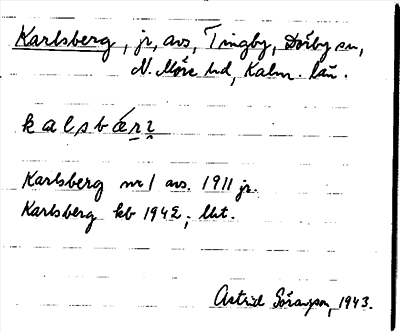 Karlsberg, jr, avs, Tingby, Dörby sn,
N. Möre hd, Kalm. län.
kalsbærɪ
Karlsberg nr 1 avs. 1911 jr.
Karlsberg kb 1942; Utt.
Astrid Göransson, 1943.